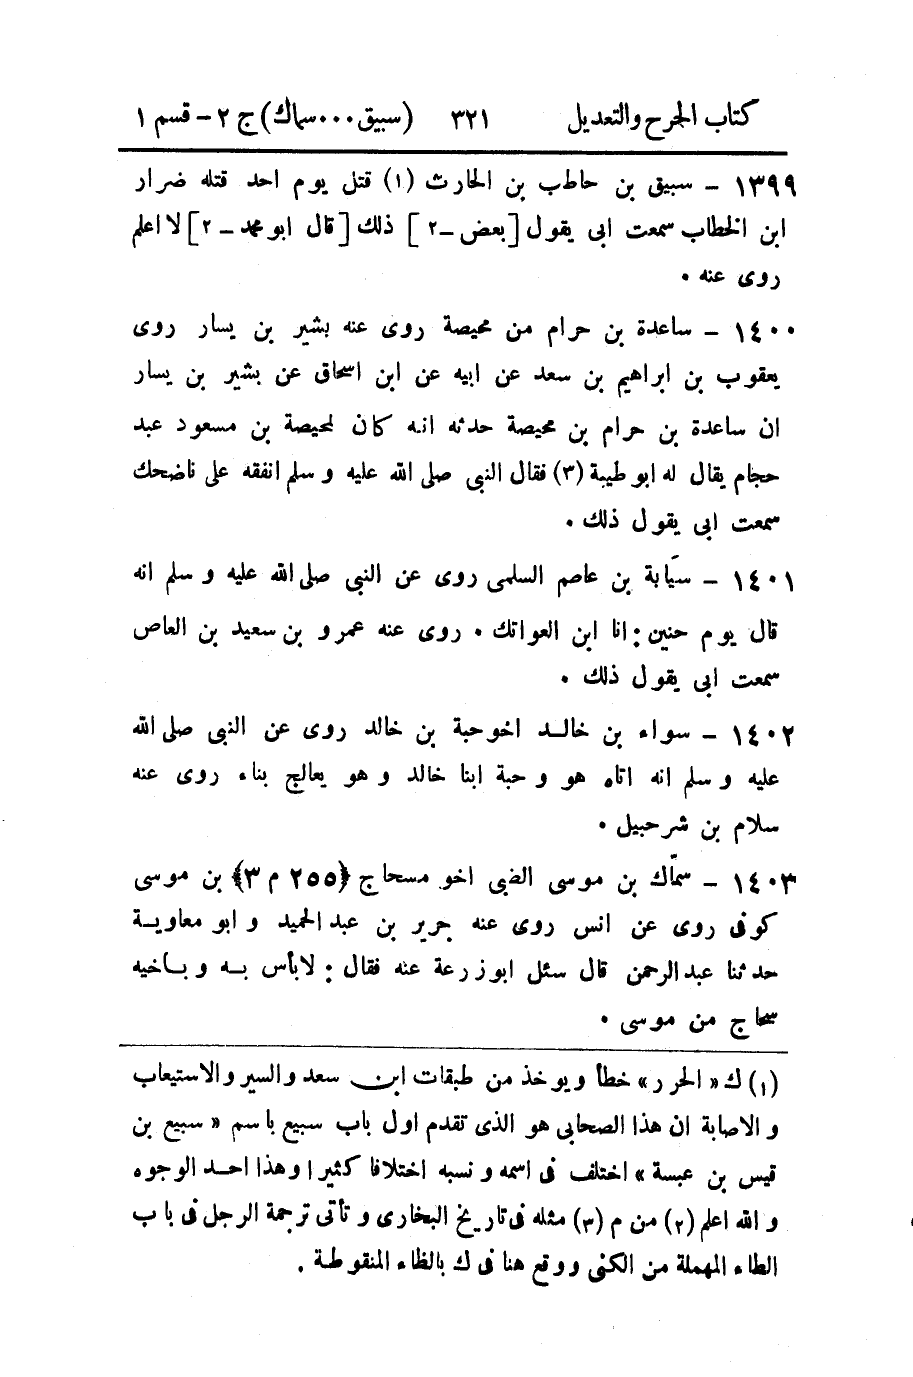 كتاب الجرح والتعديل ٣٢١ (سبيق...سماك) ج ٢ - قسم ١
١٣٩٩ - سبيق بن حاطب بن الحارث (١) قتل يوم احد قتله ضرار
ابن الخطاب سمعت ابى يقول [بعض - ٢] ذلك [قال ابو محمد - ٢] لا اعلم
روى عنه .
١٤٠٠ - ساعدة بن حرام من محيصة روى عنه بشير بن يسار روى
يعقوب بن ابراهيم بن سعد عن ابيه عن ابن اسحاق عن بشير بن يسار
ان ساعدة بن حرام بن محيصة حدثه انه كان لمحيصة بن مسعود عبد
حجام يقال له ابو طيبة (٣) فقال النبى صلى الله عليه و سلم انفقه على ناضحك
سمعت ابى يقول ذلك .
١٤٠١ - سيّابة بن عاصم السلمى روى عن النبى صلى الله عليه و سلم انه
قال يوم حنين : انا ابن العواتك . روى عنه عمرو بن سعيد بن العاص
سمعت ابى يقول ذلك .
١٤٠٢ - سواء بن خالد اخو حبة بن خالد روى عن النبى صلى الله
عليه و سلم انه اتاه هو و حبة ابنا خالد و هو يعالج بناء روى عنه
سلام بن شرحبيل .
١٤٠٣ - سمّاك بن موسى الضبى اخو مسحاج ﴿٢٥٥ م ٣﴾ بن موسى
كوفى روى عن انس روى عنه جرير بن عبد الحميد و ابو معاوية
حدثنا عبد الرحمن قال سئل ابو زرعة عنه فقال : لا بأس به و باخيه
سحاج من موسى .
(١) ك « الحرر » خطأ ويوخذ من طبقات ابن سعد والسير والاستيعاب
و الاصابة ان هذا الصحابى هو الذى تقدم اول باب سبيع باسم « سبيع بن
قيس بن عبسة » اختلف فى اسمه و نسبه اختلافا كثيرا وهذا احد الوجوه
و الله اعلم (٢) من م (٣) مثله فى تاريخ البخارى و تأتى ترجمة الرجل فى باب
الطاء المهملة من الكنى ووقع هنا فى ك بالظاء المنقوطة .